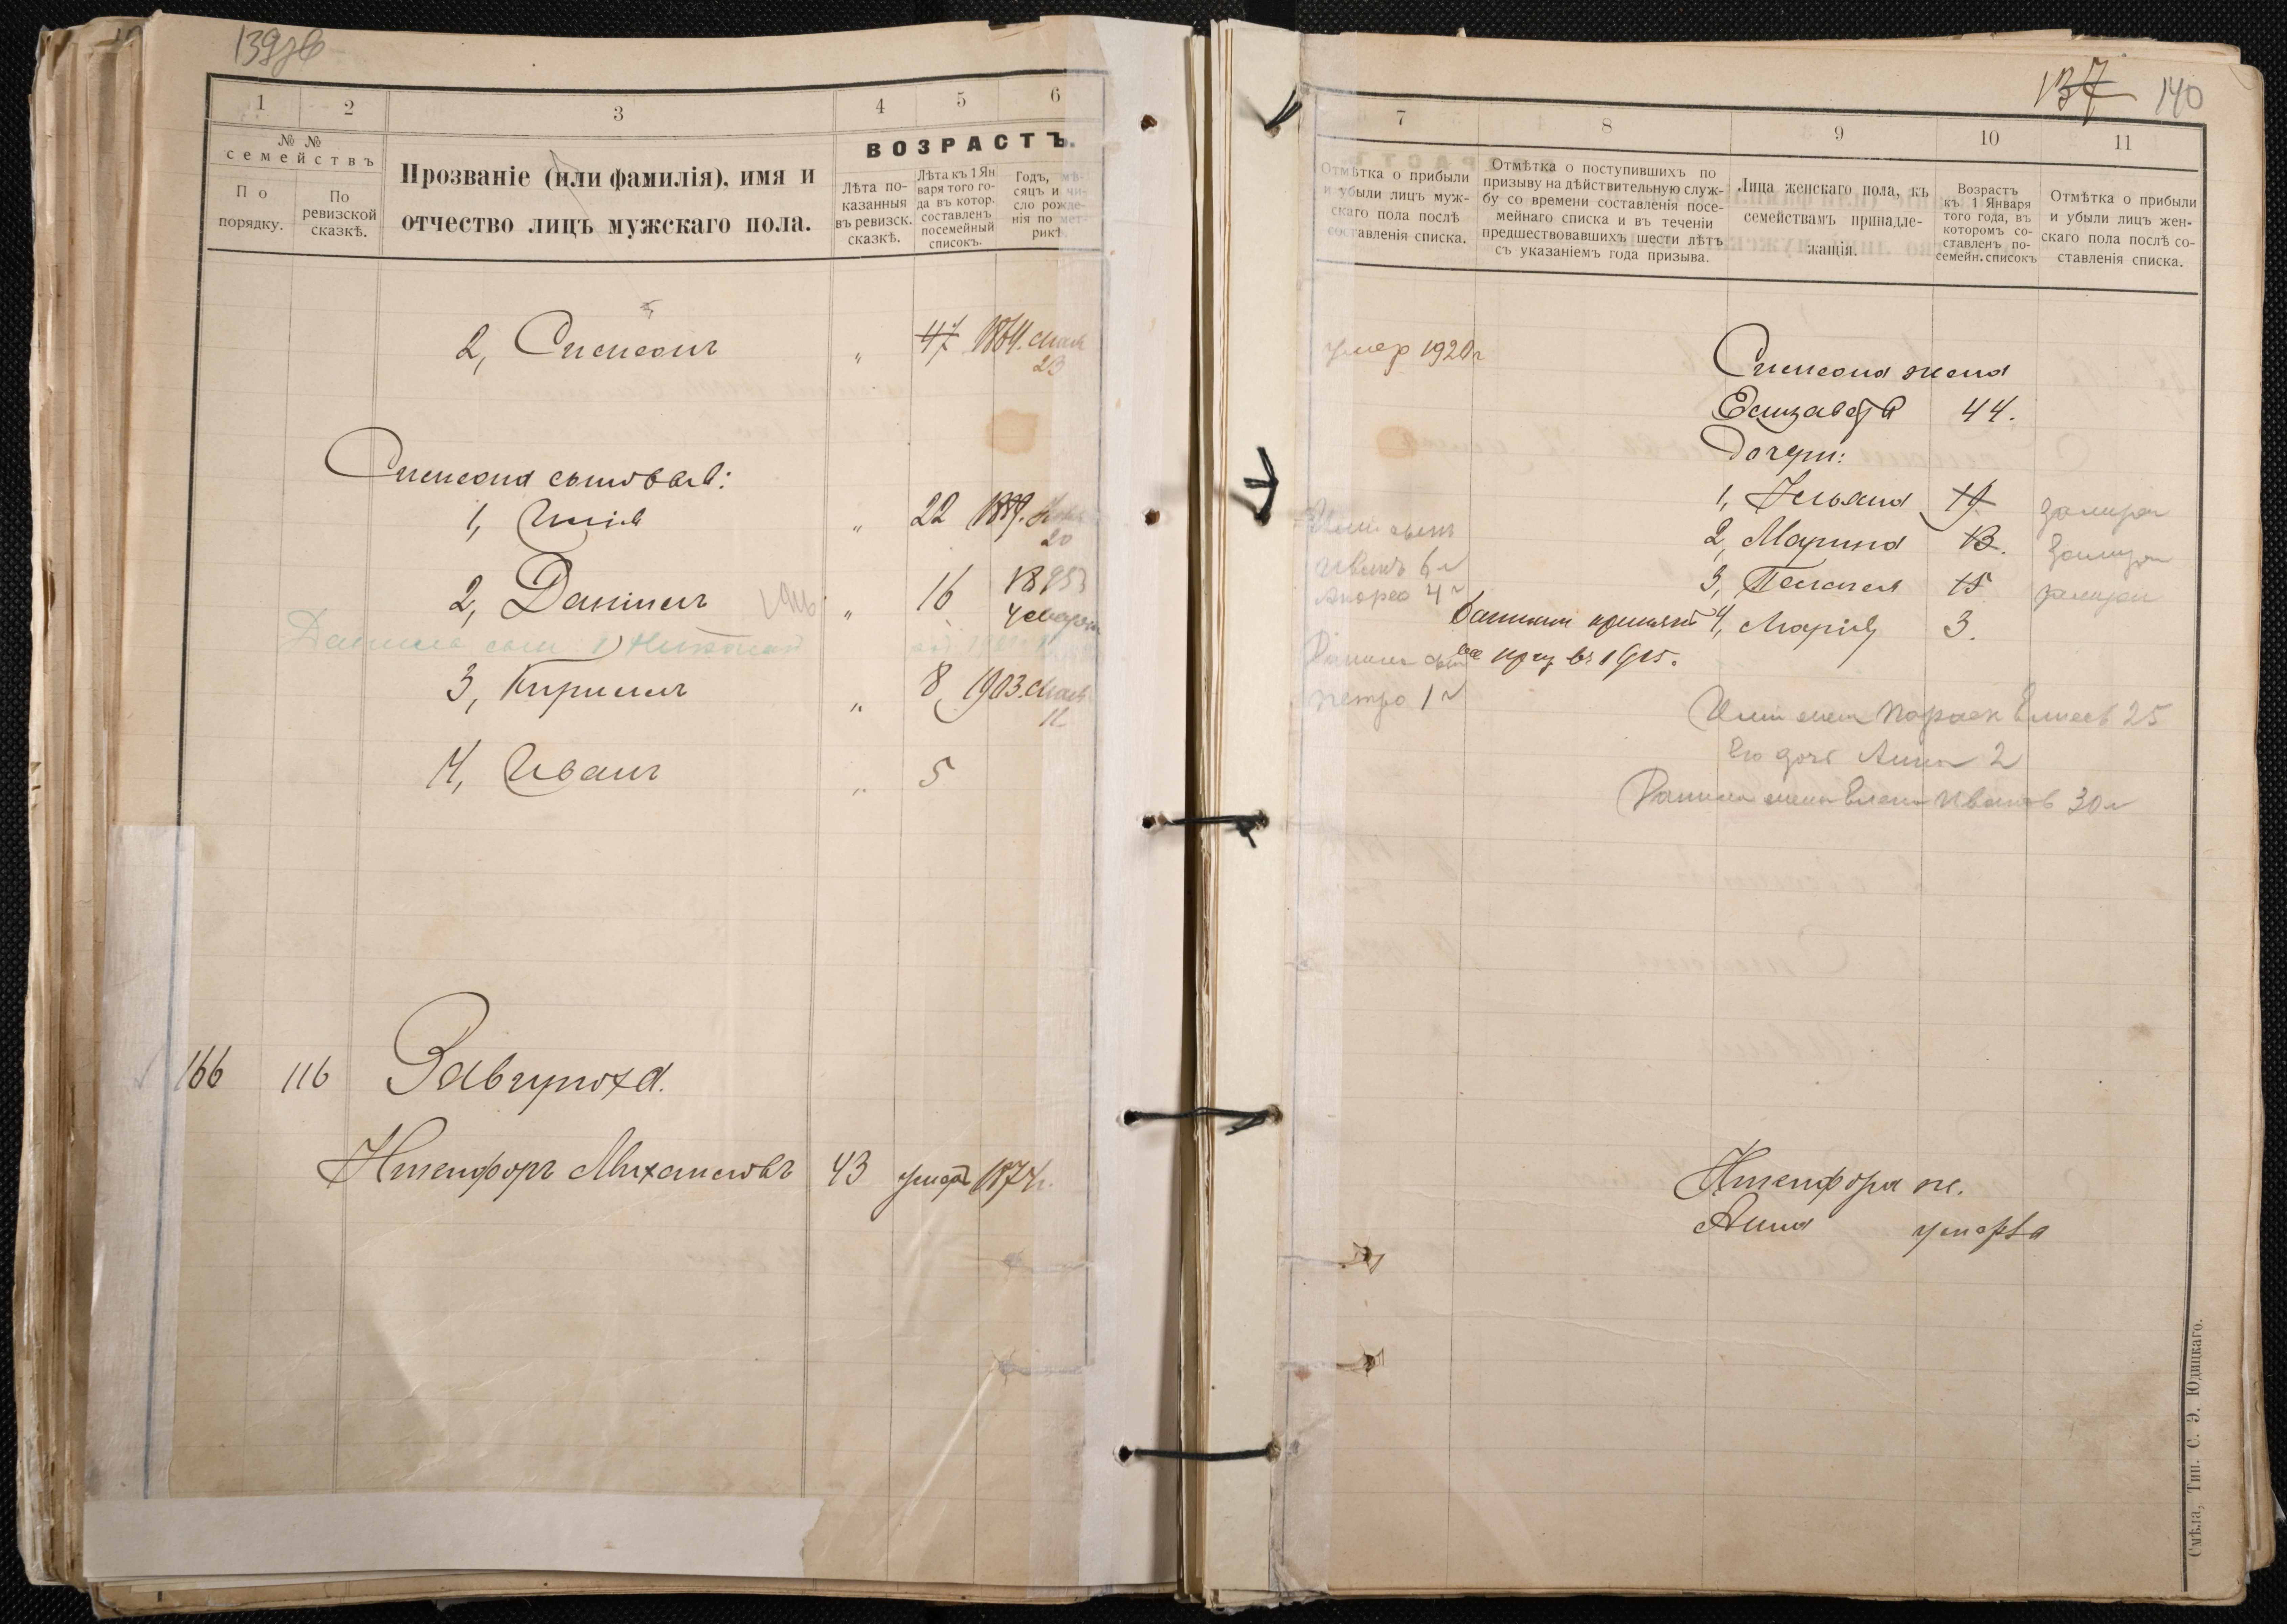 139зв
1
2
3
4
5
6
№ №
семействъ
По порядку.
По ревизской сказкѣ.
Прозваніе (или фамилія), имя и
отчество лицъ мужскаго пола.
ВОЗРАСТЪ.
Лѣта по-
казанныя
въ ревизск.
сказкѣ.
Лѣта къ 1 Ян
варя того го-
да въ котор.
составленъ
посемейный
списокъ.
Годъ, мѣ-
сяцъ и чи-
сло рожде-
нія по мет-
рикѣ
2, Симеонъ " 47 1864. мая
23
Симеона сыновья:
1, Илія " 22 1889.
20
2, Даніилъ " 16 1895
4 января
Данила сын 1) Николай
3, Кирилъ " 8 1903. мая
11
4, Иванъ " 5
166 116 Завгуроха.
Никифоръ Михаиловъ 43 умеръ 1874г.
137 140
7
8
9
10
11
Отмѣтка о прибыли
и убыли лицъ муж-
скаго пола послѣ
составленія списка.
Отмѣтка о поступившихъ по
призыву на дѣйствительную служ-
бу со времени составленія посе-
мейнаго списка и въ теченіи
предшествовавшихъ шести лѣтъ
съ указаніемъ года призыва.
Лица женскаго пола, къ
семействамъ принадле-
жащія.
Возрастъ
къ 1 Января
того года, въ
которомъ со-
ставленъ по-
семейн. списокъ
Отмѣтка о прибыли
и убыли лицъ жен-
скаго пола послѣ со-
ставленія списка.
умер 1920г
Симеона жена
Елизавета 44.
Дочери:
1, Ульяна 19 замужем
2, Марина 13. замужем
3, Пелагея 15 замужем
4, Марія 3.
Илии сын
Иванъ 6 л
Андрей 4 л
Даніилъ принятъ
на призу въ 1915.
Данила сын
Петро 1 л
Илии жена Параск Елисеев 25
Его дочь Анна 2
Данила жена Елена Иванов 30 л
Никифора ж.
Анна умерла
Смѣла, Тип. С. Э. Юдицкаго.